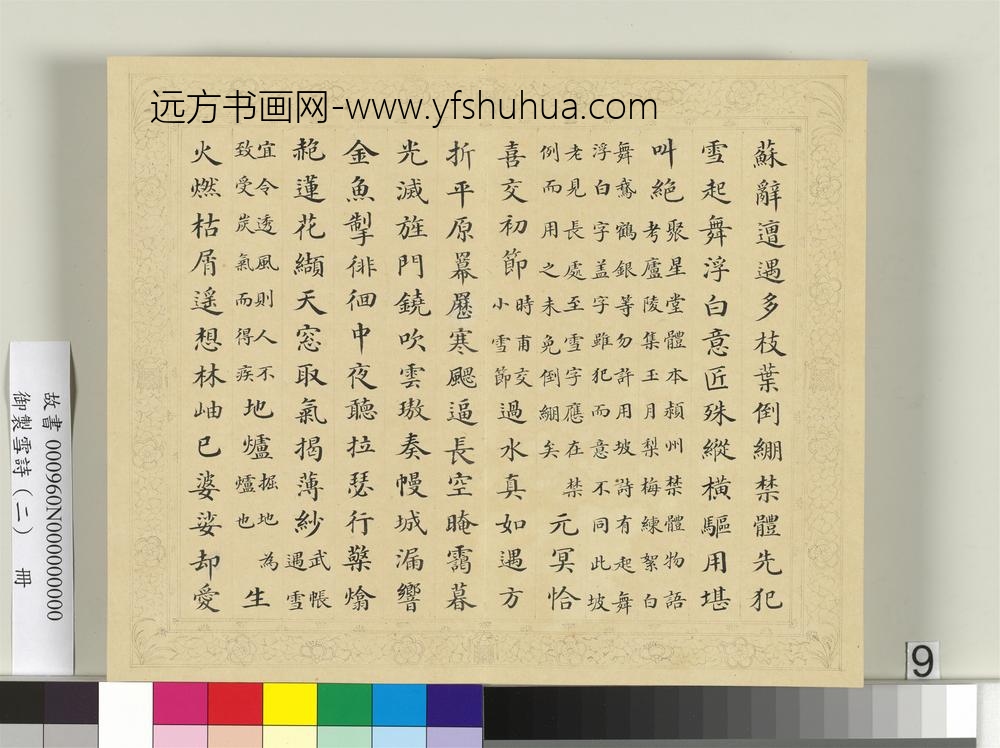 远方书画网-www.yfshuhua.com
蘇辭邅遇多枝葉倒綳禁體先犯
雪起舞浮白意匠殊縱橫驅用堪
叫絶
聚星堂體本潁州禁體物語
考廬陵集玉月梨梅練絮白
舞鵞鶴銀等勿許用坡詩有起舞
浮白字盖字雖犯而意不同此坡
老見長處至雪字應在禁
例而用之未免倒綳矣
元冥恰
喜交初節
時甫交
小雪節
過水真如遇方
折平原羃寒颸逼長空晻靄暮
光滅旌門鐃吹雲璈奏幔城漏響
金魚掣徘徊中夜聽拉瑟行檠熻
赩蓮花纈天窓取氣揭薄紗
武帳
遇雪
宜令透風則人不
致受炭氣而得疾
地爐
掘地為
爐也
生
火燃枯屑遥想林岫已婆娑却愛
故書000960N000000000
御製雪詩(二) 冊
9